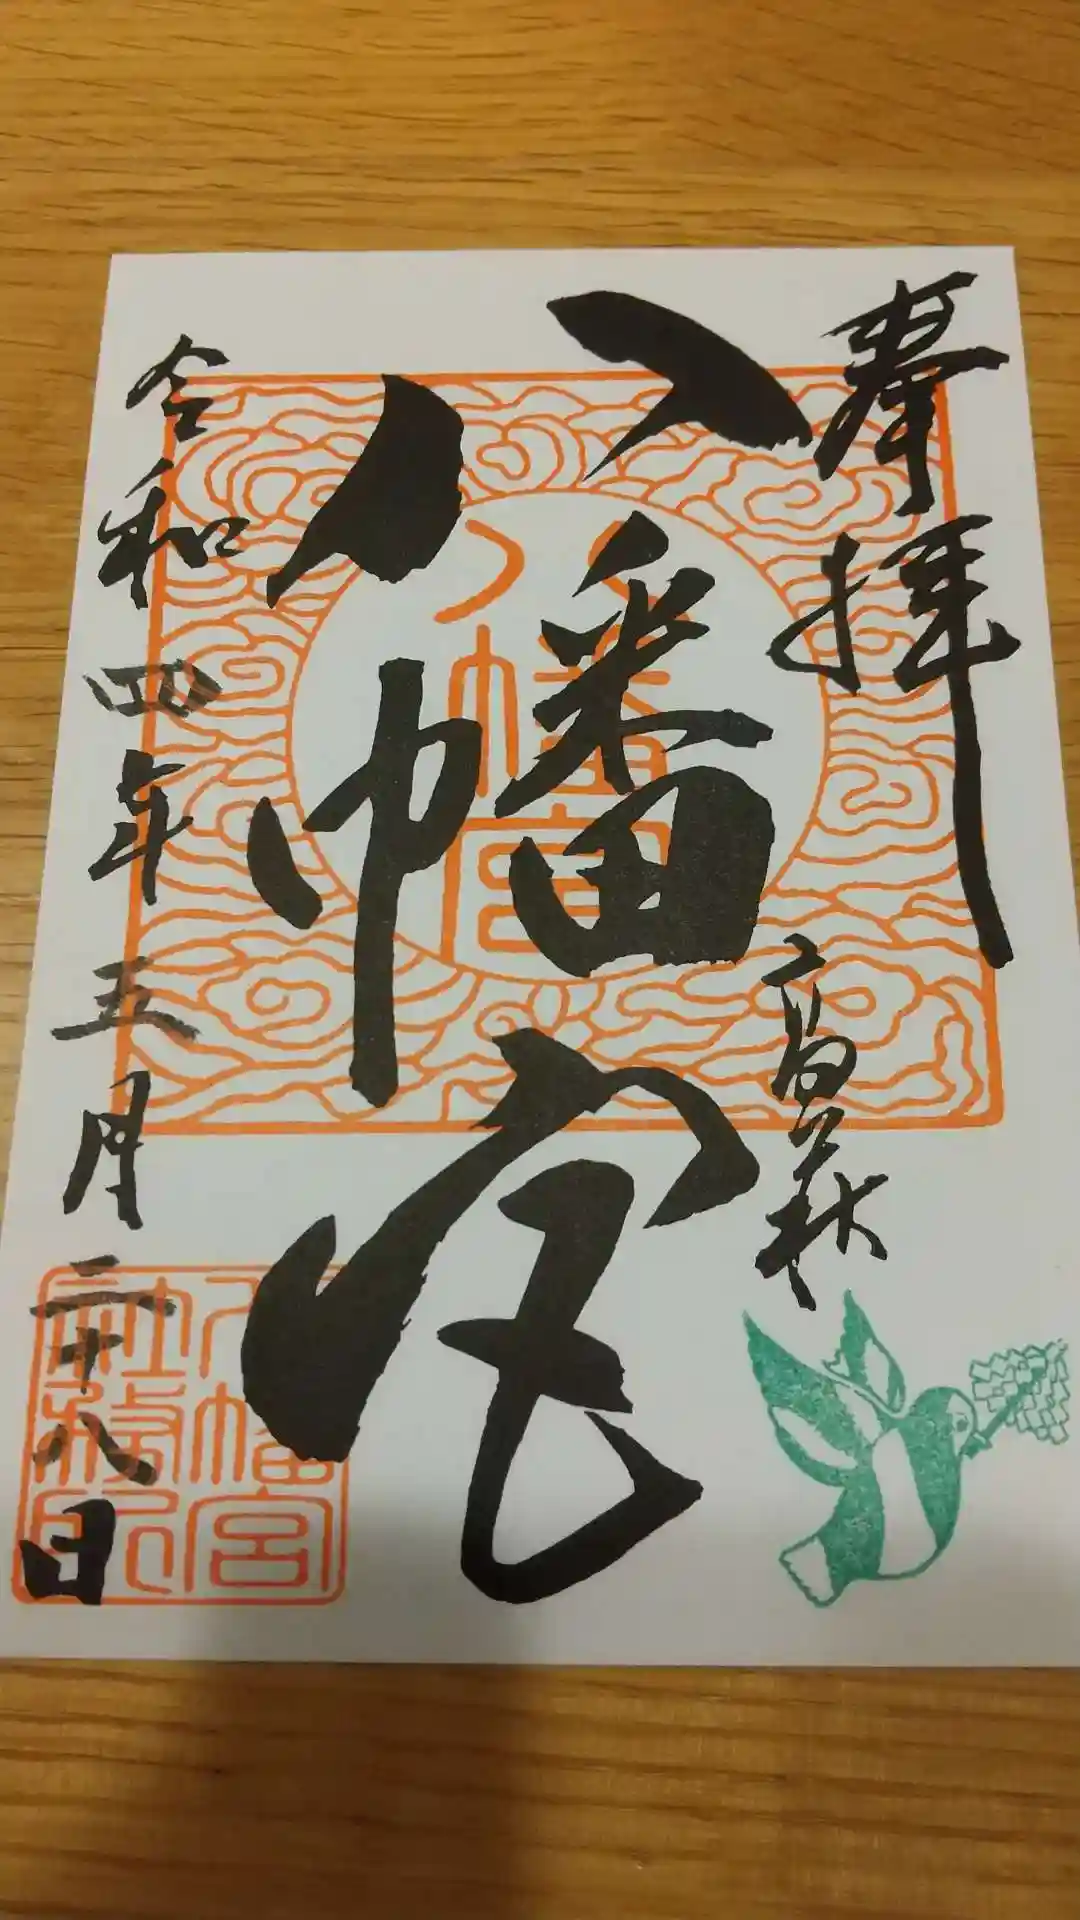 奉拝
高萩
八幡宮
令和四年五月二十八日
八幡宮
八幡宮
社務所